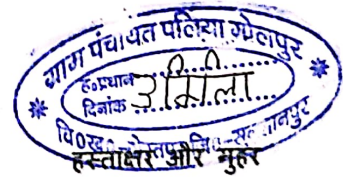 ग्राम पंचायत पलिया गोलपुर
ह०प्रधान उर्मिला
दिनांक
वि०ख०
हस्ताक्षर और मुहर